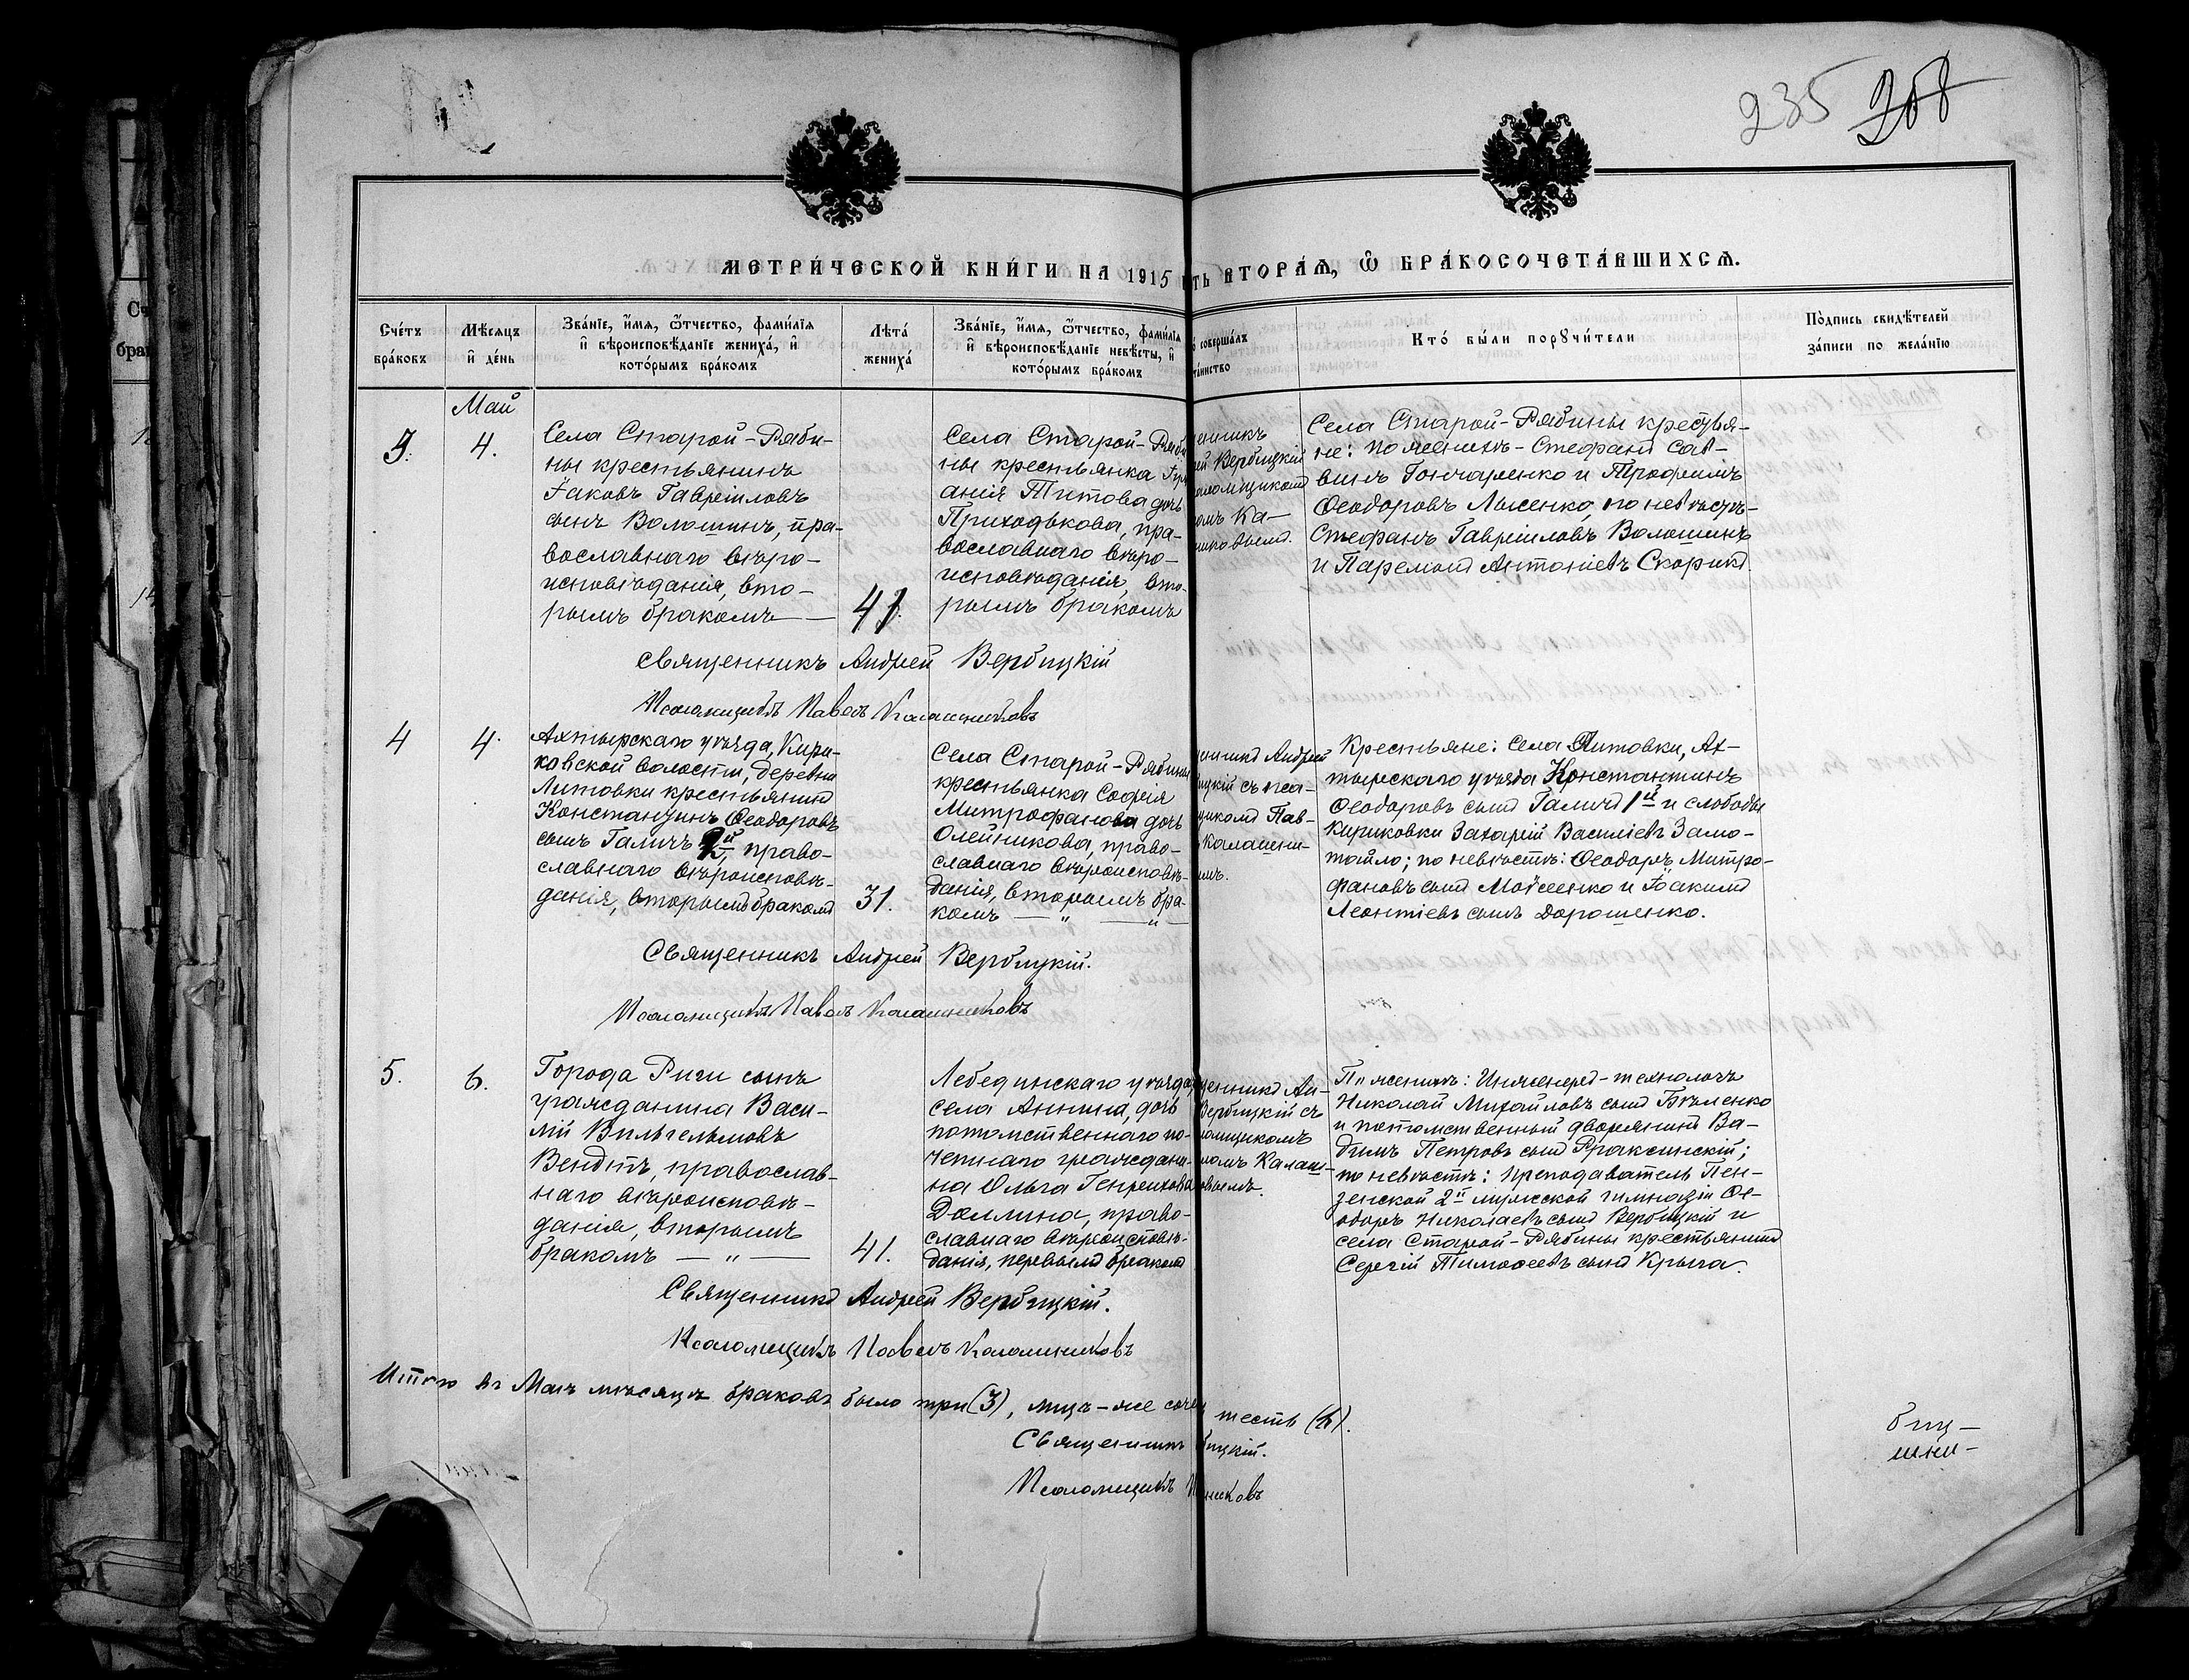 235 258
МЕТРИ́ЧЕСКОЙ КНИ́ГИ НА 1915
ТЬ ВТОРА́Я, Ѿ БРА́КОСОЧЕТА́ВШИХСЯ.
Сче́тъ бра́ковъ
Мѣ́сяцъ и҆ де́нь
Зва́нїе, и҆́мя, ѻ҆́тчество, фами́лїя и҆ вѣроисповѣ́данїе жениха̀, и҆ кото́рымъ бра́комъ
Лѣта̀ жениха̀
Зва́нїе, и҆́мя, ѻ҆́тчество, фами́лїя и҆ вѣроисповѣ́данїе невѣ́сты, и҆ кото́рымъ бра́комъ
соверша́лъ
та́инство
Кто̀ бы́ли порꙋчи́тели
По́дпись свидѣ́телей за́писи по жела́нїю
Май
3.
4.
Села Старой-Ряби-
ны крестьянинъ
Іаковъ Гавріиловъ
сынъ Волошинъ, пра-
вославнаго вѣро-
исповѣданія, вто-
рымъ бракомъ —
41.
Села Старой-Ряби
ны крестьянка
анія Титова дочь
Приходькова, пра-
вославнаго вѣро-
исповѣданія, вто-
рымъ бракомъ
енникъ
ей Вербицкій
аломщикомъ
омъ Ка-
никовымъ.
Села Старой-Рябины крестья-
не: по женихѣ - Стефанъ Сав-
винъ Гончаренко и Трофимъ
Ѳеодоровъ Лысенко, по невѣстѣ-
Стефанъ Гавріиловъ Волошинъ
и Паремонъ Антоніевъ Скорикъ
Священникъ Андрей Вербицкій
Псаломщикъ Павелъ Калашниковъ
4
4.
Ахтырскаго уѣзда, Кири-
ковской волости, деревни
Литовки крестьянинъ
Константинъ Ѳеодоровъ
сынъ Галичъ 2й, право-
славнаго вѣроисповѣ-
данія, вторымъ бракомъ
31.
Села Старой-Рябины
крестьянка Софія
Митрофанова дочь
Олейникова, право-
славнаго вѣроисповѣ-
данія, вторымъ бра-
комъ — " —
енникъ Андрей
ицкій съ пса-
щикомъ Пав-
Калашни-
ымъ.
Крестьяне: Села Литовки, Ах-
тырскаго уѣзда Константинъ
Ѳеодоровъ сынъ Галичъ 1й и слободы
Кириковки Захарій Василіевъ Замо-
тайло; по невѣстѣ: Ѳеодоръ Митро-
фановъ сынъ Моисеенко и Іоакимъ
Леонтіевъ сынъ Дорошенко.
Священникъ Андрей Вербицкій.
Псаломщикъ Павелъ Калашниковъ
5.
6.
Города Риги сынъ
гражданина Васи-
лій Вильгельмовъ
Вендтъ, православ-
наго вѣроисповѣ-
данія, вторымъ
бракомъ — " —
41.
Лебединскаго уѣзда,
села Аннина, дочь
потомственнаго по-
четнаго граждани-
на Ольга Генрихова
Деллина, право-
славнаго вѣроисповѣ-
данія, первымъ бракомъ
щенникъ Ан-
Вербицкій съ
омщикомъ
ломъ Калаш-
овымъ.
По женихѣ: Инженеръ-технологъ
Николай Михайловъ сынъ Бѣленко
и потомственный дворянинъ Ва-
димъ Петровъ сынъ Ѳраксинскій;
по невѣстѣ: преподаватель Пен-
зенской 2й мужской гимназіи Ѳе-
одоръ Николаевъ сынъ Вербицкій и
села Старой-Рябины крестьянинъ
Сергій Тимоѳеевъ сынъ Крыга.
Священникъ Андрей Вербицкій.
Псаломщикъ Павелъ Калашниковъ
Итого въ Маѣ мѣсяцѣ браковъ было три (3), лицъ-же соче шесть (6).
Священникъ бицкій.
Псаломщикъ никовъ
биц-
шни-